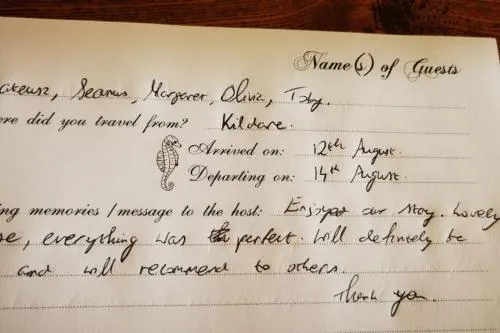 Name(s) of Guests
Seamus, Margaret, Olivia, Toby.
did you travel from? Kildare.
Arrived on: 12th August.
Departing on: 14th August.
memories / message to the host: Enjoyed our stay. Lovely
everything was perfect. Will definitely be
and will recommend to others.
Thank you.